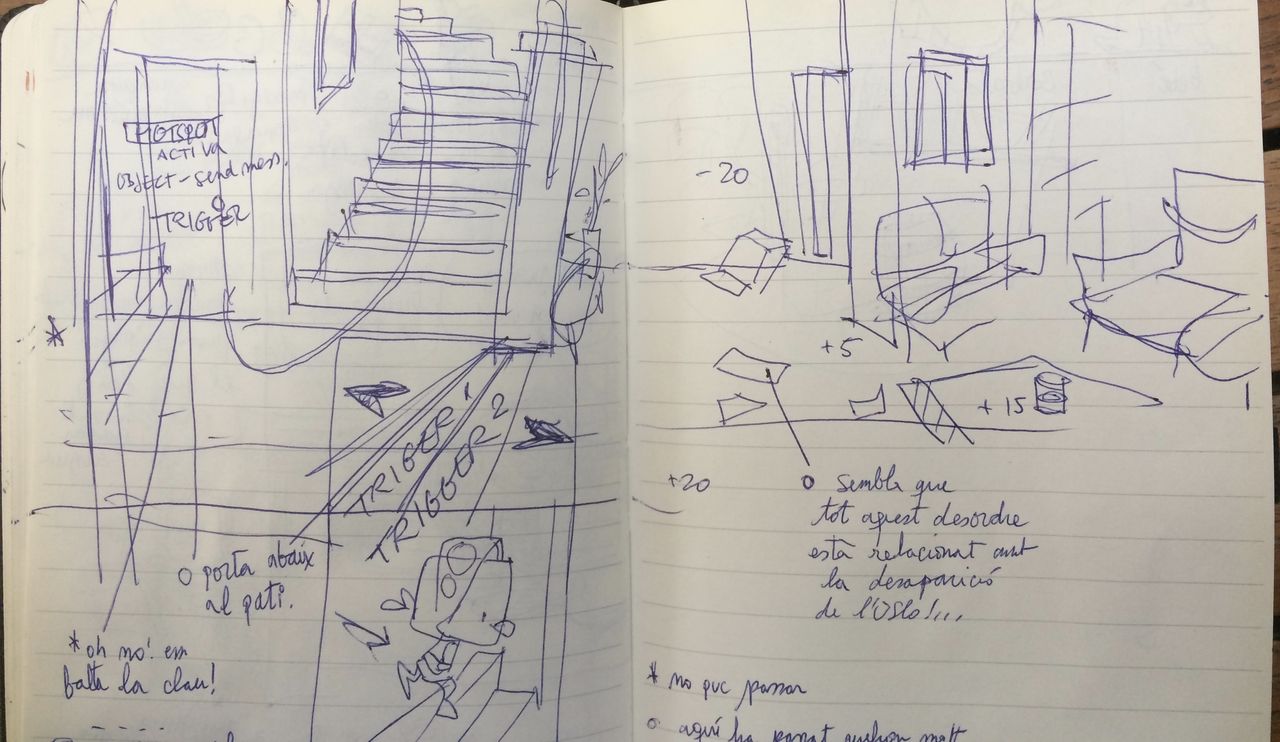 HOTSPOT
ACTIVA
OBJECT-send mess.
TRIGGER
*
TRIGGER 1
TRIGGER 2
O porta abaix
al pati.
* oh no! em
falta la clau!
-20
+5
+15
+20
O sembla que
tot aquest desordre
està relacionat amb
la desaparició
de l'Oslo!...
* no puc passar
O aquí ha passat